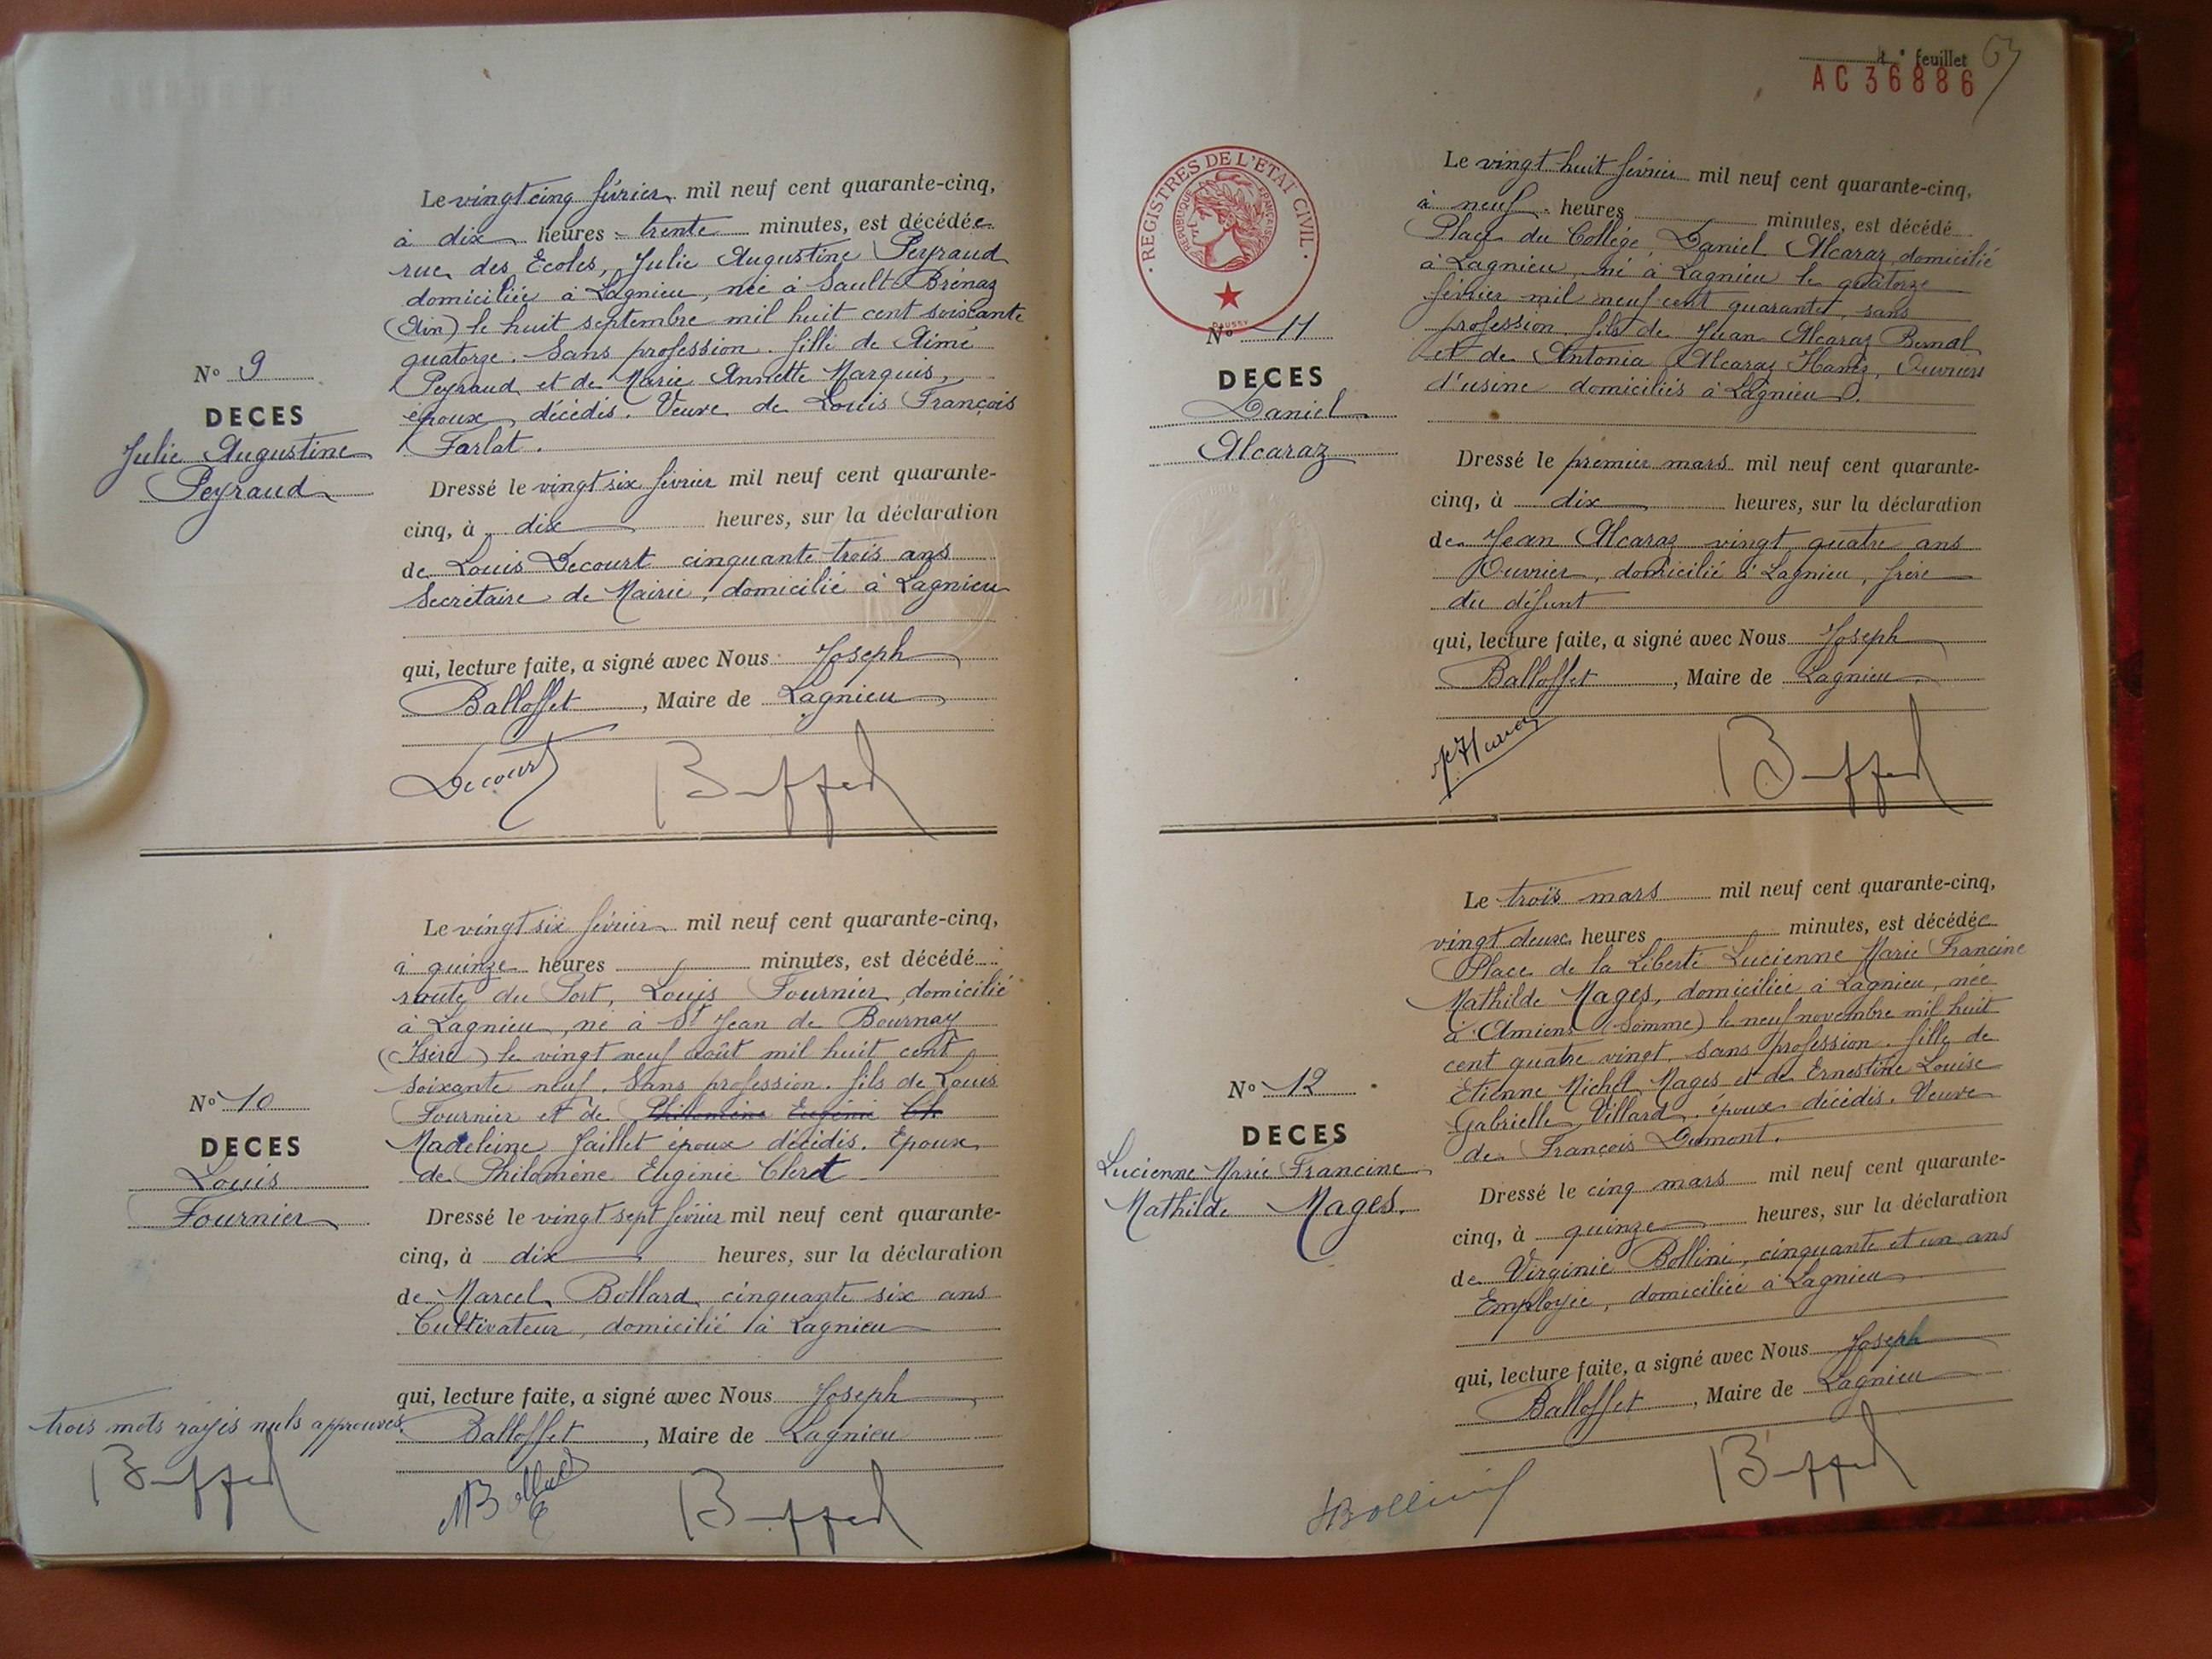 Le vingt cinq février mil neuf cent quarante-cinq,
à dix heures trente minutes, est décédée
rue des Ecoles, Julie Augustine Peyraud
domiciliée à Lagnieu, née à Sault-Brénaz
(Ain) le huit septembre mil huit cent soixante
quatorze. Sans profession. fille de Aimé
Peyraud et de Marie Annette Marquis,
époux décédés. Veuve de Louis François
Farlat.
N° 9
DECES
Julie Augustine
Peyraud
Dressé le vingt six février mil neuf cent quarante-
cinq, à dix heures, sur la déclaration
de Louis Decourt cinquante-trois ans
Secrétaire de Mairie, domicilié à Lagnieu
qui, lecture faite, a signé avec Nous Joseph
Balloffet, Maire de Lagnieu
Decourt
Le vingt six février mil neuf cent quarante-cinq,
à quinze heures minutes, est décédé
route du Port, Louis Fournier, domicilié
à Lagnieu, né à St Jean de Bournay
(Isère) le vingt neuf août mil huit cent
soixante neuf. Sans profession. fils de Louis
Fournier et de Philomène Eugénie Cle
Madeleine Jaillet époux décédés. Epoux
de Philomène Eugénie Cleret
N° 10
DECES
Louis
Fournier
Dressé le vingt sept février mil neuf cent quarante-
cinq, à dix heures, sur la déclaration
de Marcel Bollard cinquante six ans
Cultivateur, domicilié à Lagnieu
qui, lecture faite, a signé avec Nous Joseph
Balloffet, Maire de Lagnieu
trois mots rayés nuls approuvés
4e feuillet
AC 36886
REGISTRES DE L'ETAT CIVIL
REPUBLIQUE FRANCAISE
Le vingt-huit février mil neuf cent quarante-cinq,
à neuf heures minutes, est décédé
Place du Collège, Daniel Alcaraz, domicilié
à Lagnieu, né à Lagnieu le quatorze
février mil neuf cent quarante, sans
profession. fils de Jean Alcaraz Bernal
et de Antonia Alcaraz, Ouvriers
d'usine domiciliés à Lagnieu.
N° 11
DECES
Daniel
Alcaraz
Dressé le premier mars mil neuf cent quarante-
cinq, à dix heures, sur la déclaration
de Jean Alcaraz vingt quatre ans
Ouvrier, domicilié à Lagnieu, frère
du défunt
qui, lecture faite, a signé avec Nous Joseph
Balloffet, Maire de Lagnieu
Le trois mars mil neuf cent quarante-cinq,
vingt deux heures minutes, est décédée
Place de la Liberté Lucienne Marie Francine
Mathilde Mages, domiciliée à Lagnieu, née
à Amiens (Somme) le neuf novembre mil huit
cent quatre vingt. Sans profession. fille de
Etienne Michel Mages et de Ernestine Louise
Gabrielle Villard, époux décédés. Veuve
de François Dumont.
N° 12
DECES
Lucienne Marie Francine
Mathilde Mages.
Dressé le cinq mars mil neuf cent quarante-
cinq, à quinze heures, sur la déclaration
de Virginie Bollini, cinquante et un ans
Employée, domiciliée à Lagnieu
qui, lecture faite, a signé avec Nous Joseph
Balloffet, Maire de Lagnieu
VBollini